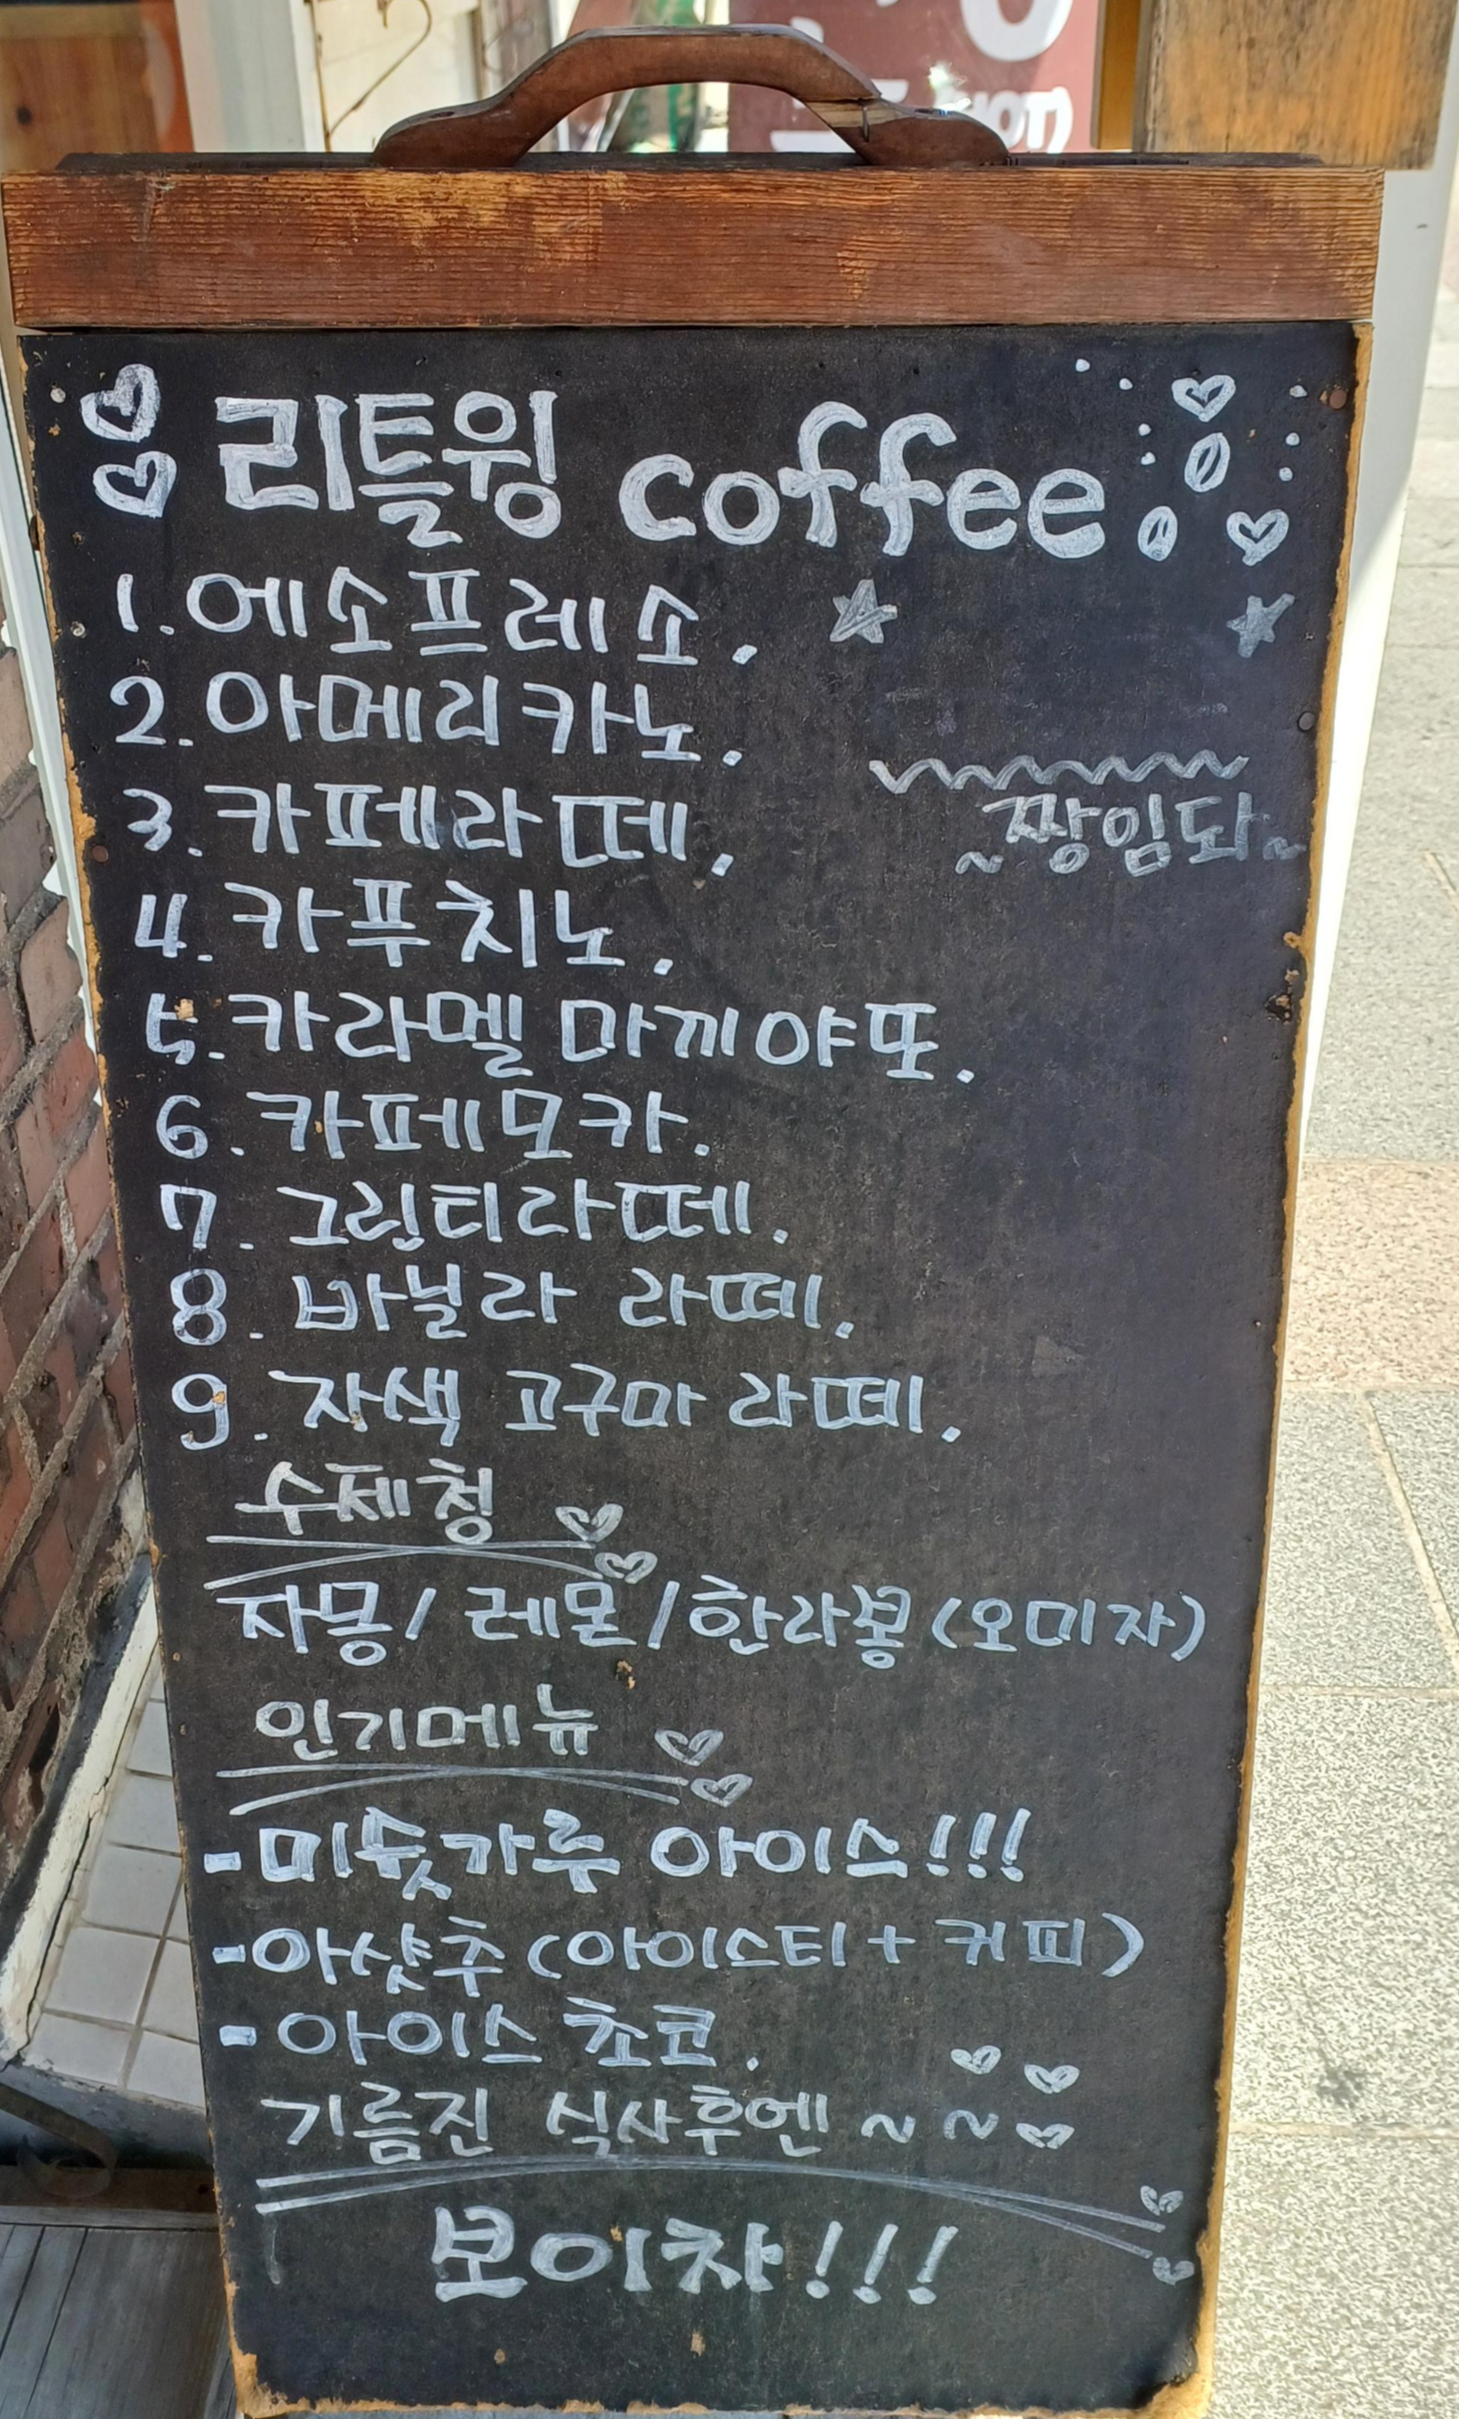 리틀윙 coffee
1. 에소프레소.
2. 아메리카노.
3. 카페라떼.
~짱임돠~
4. 카푸치노.
5. 카라멜 마끼야또.
6. 카페모카.
7. 그린티라떼.
8. 바닐라 라떼.
9. 자색 고구마 라떼.
수제청
자몽/레몬/한라봉(오미자)
인기메뉴
-미숫가루 아이스!!!
-아샷추(아이스티+커피)
-아이스 초코.
기름진 식사후엔~~
보이차!!!